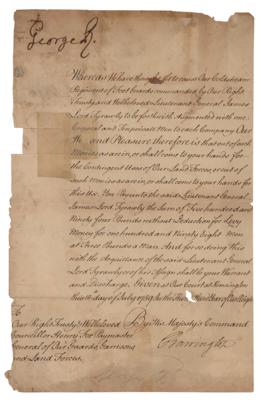 George R.
Whereas We have thought fit to cause Our Coldstream
Regiment of Foot Guards commanded by Our Right
Trusty and Welbeloved Lieutenant General James
Lord Tyrawly to be forthwith augmented with one
Corporal and Ten private Men to each Company Our
Will and Pleasure therefore is that out of such
Monies as are in, or shall come to your hands for
the Contingent Uses of Our Land Forces, or out of
such Monies as are in, or shall come to your hands for
this Use. You Pay unto the said Lieutenant General
James Lord Tyrawly the Sum of Five hundred and
Ninety four Pounds without Deduction for Levy
Money for one hundred and Ninety Eight Men
at Three Pounds a Man. And for so doing this
with the Acquittance of the said Lieutenant General
Lord Tyrawly or of his Assign shall be your Warrant
and Discharge. Given at Our Court at Kensington
this day of July 1759 in the Thirty Third Year of Our Reign
To
Our Right Trusty & Welbeloved
Councellor Henry Fox Paymaster
General of Our Guards, Garrisons
and Land Forces.
By His Majesty's Command
Barrington